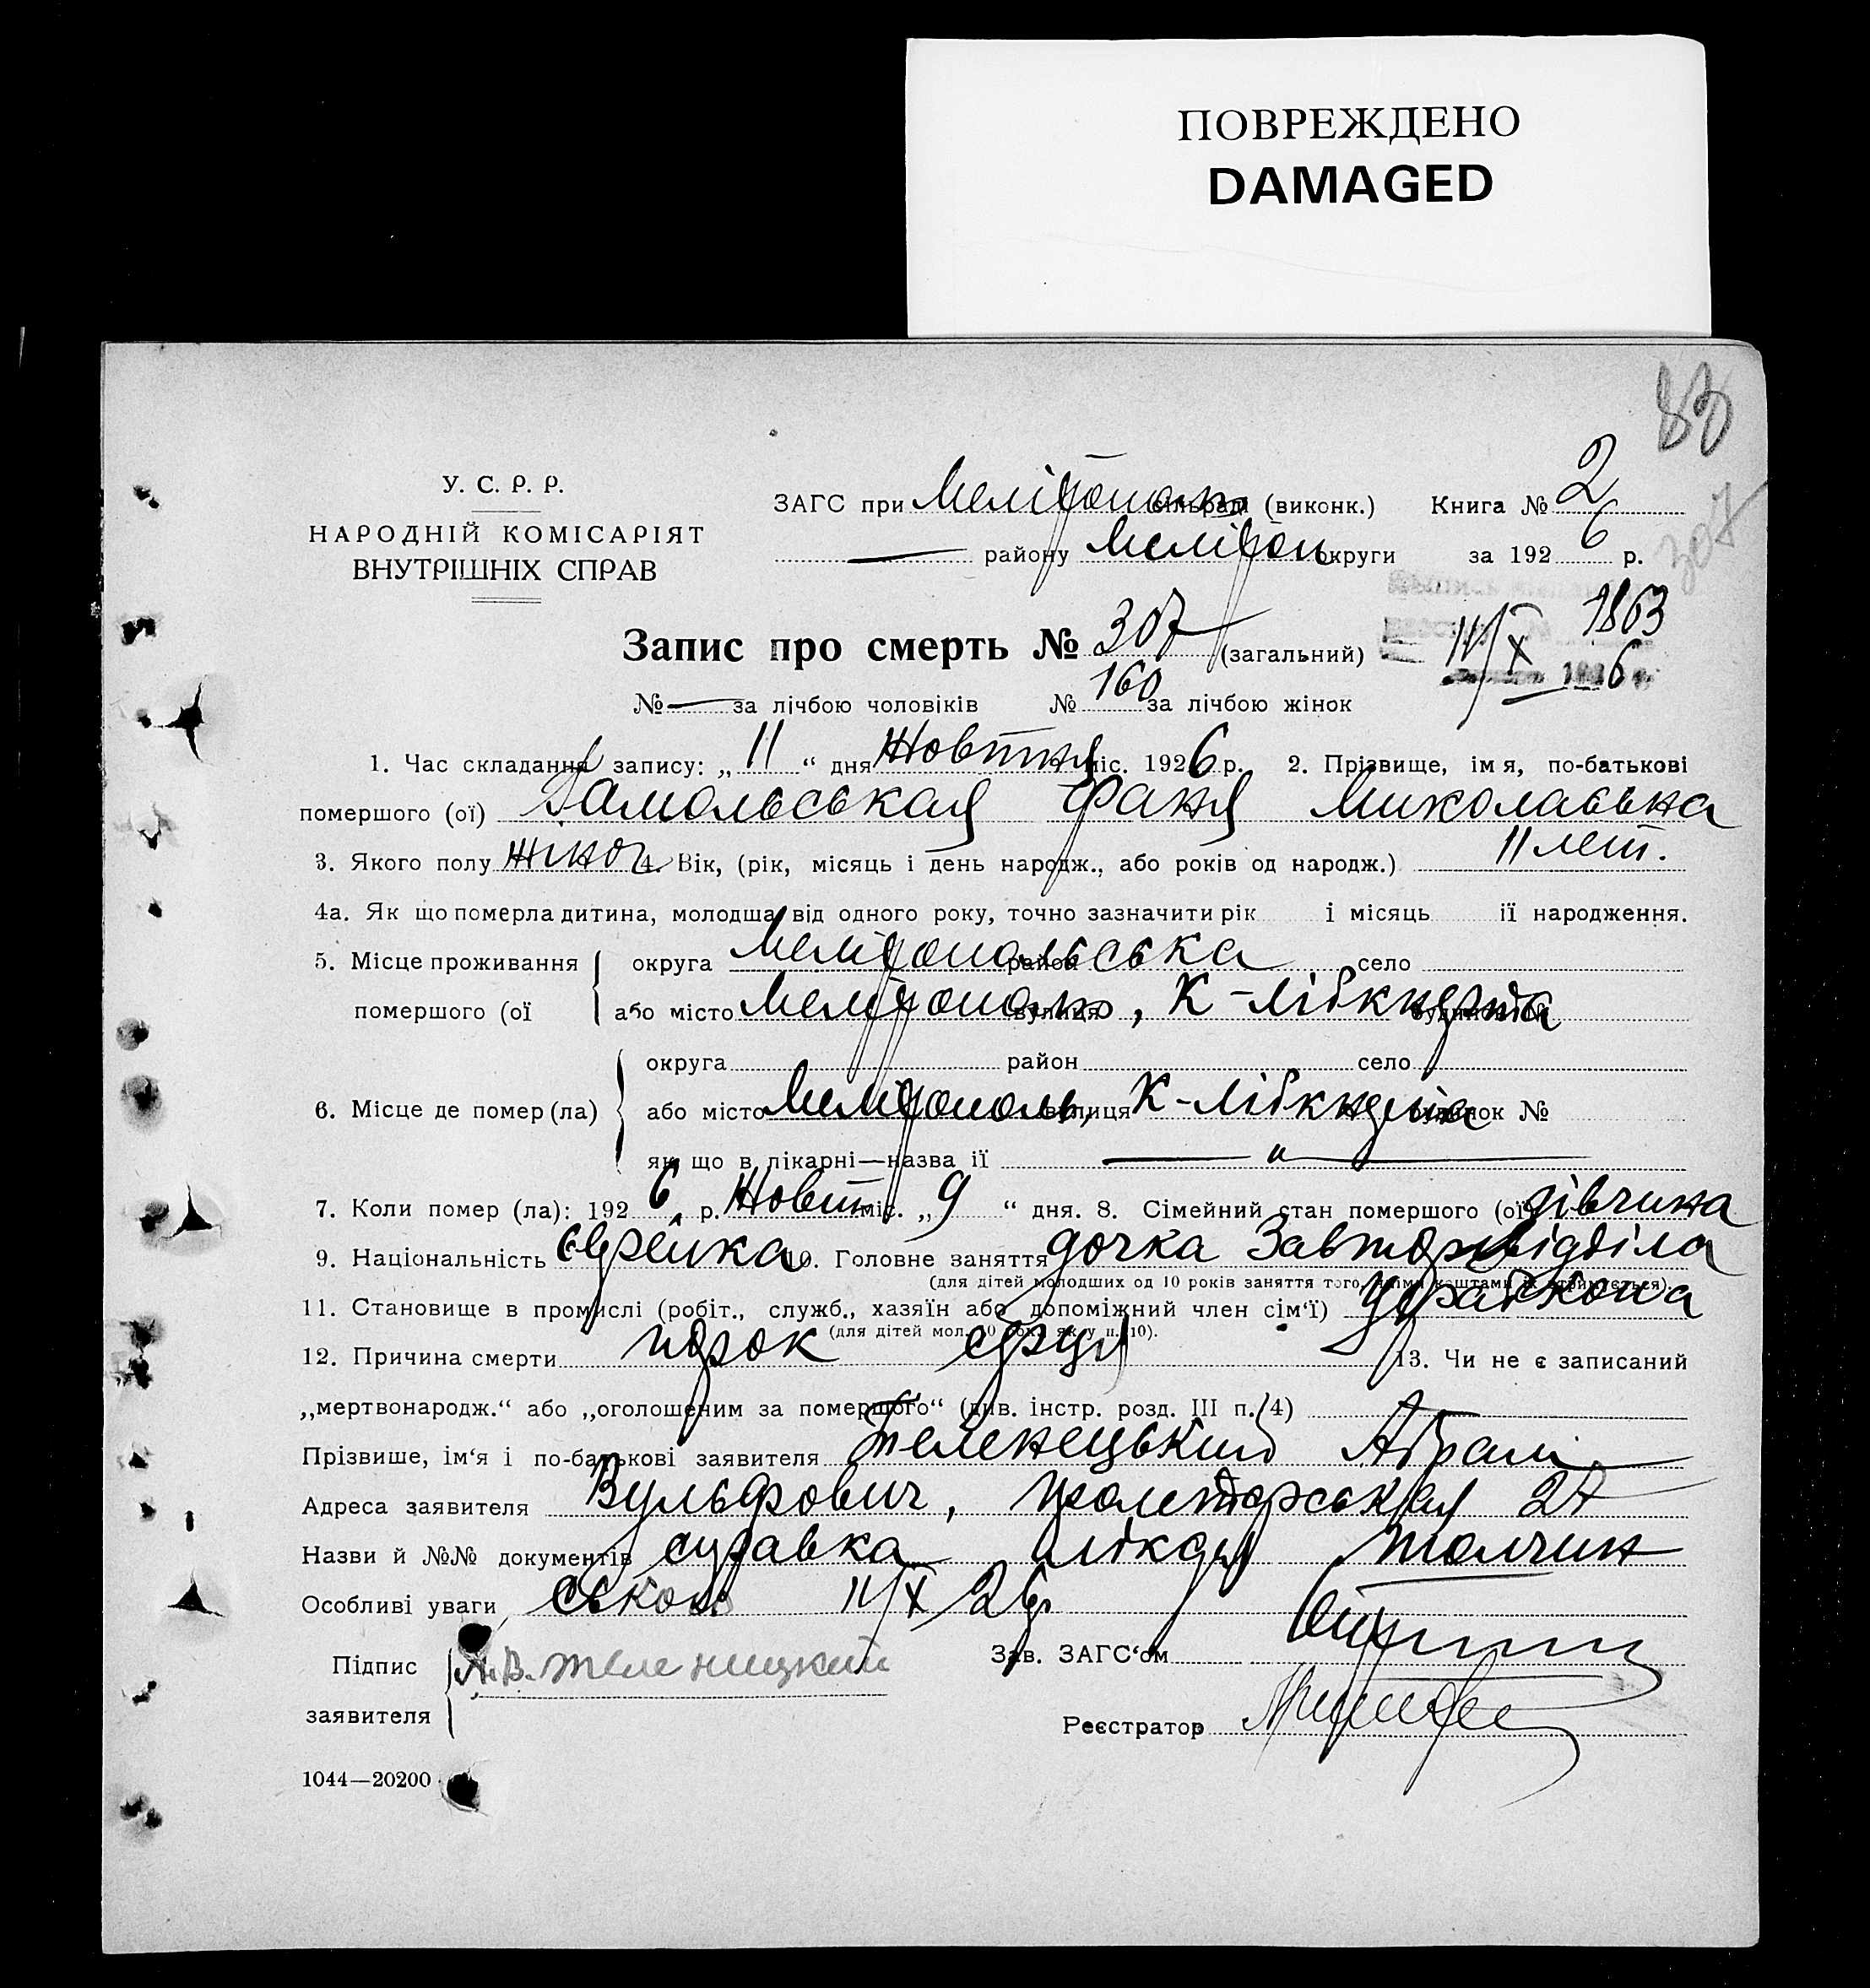 ПОВРЕЖДЕНО
DAMAGED
83
307
У. С. Р. Р.
НАРОДНІЙ КОМІСАРІЯТ
ВНУТРІШНІХ СПРАВ
ЗАГС при Мелітополь сільраді (виконк.) Книга № 2
— району Мелітоп округи за 1926 р.
Запис про смерть № 307 (загальний)
1863
11/X 1926
№ — за лічбою чоловіків № 160 за лічбою жінок
1. Час складання запису: „ 11 “ дня Жовтня міс. 1926 р. 2. Прізвище, ім я, по-батькові
помершого (ої) Гамольськая Фаня Миколаївна
3. Якого полу жіноч 4. Вік, (рік, місяць і день народж., або років од народж.) 11 лет.
4а. Як що померла дитина, молодша від одного року, точно зазначити рік і місяць ії народження.
5. Місце проживання округа Мелітопольська район село
помершого (ої або місто Мелітополь, вулиця К-Лібкнехта будинок №
округа район село
6. Місце де помер (ла) або місто Мелітополь, вулиця К-Лібкнехта будинок №
як що в лікарні—назва ії — „ —
7. Коли помер (ла): 1926 р. Жовт міс. „ 9 “ дня. 8. Сімейний стан помершого (ої) дівчина
9. Національність єврейка 10. Головне заняття дочка Завторгвідділа
(для дітей молодших од 10 років заняття того, чиїми коштами їх утримується).
11. Становище в промислі (робіт., служб., хазяїн або допоміжний член сім‘ї) Церабкопа
(для дітей мол. 10 рок. як у п. 10).
12. Причина смерти порок серця 13. Чи не є записаний
„мертвонародж.“ або „оголошеним за помершого“ (див. інстр. розд. III п. 4)
Прізвише, ім‘я і по-батькові заявителя Теленецький Абрам
Адреса заявителя Вульфович, пролетарськая 27
Назви й №№ документів справка лікаря Толчин
Особливі уваги ського 11/X 26р
Підпис А.В. Теленицкий Зав. ЗАГС‘ом
заявителя
Реєстратор
1044—20200